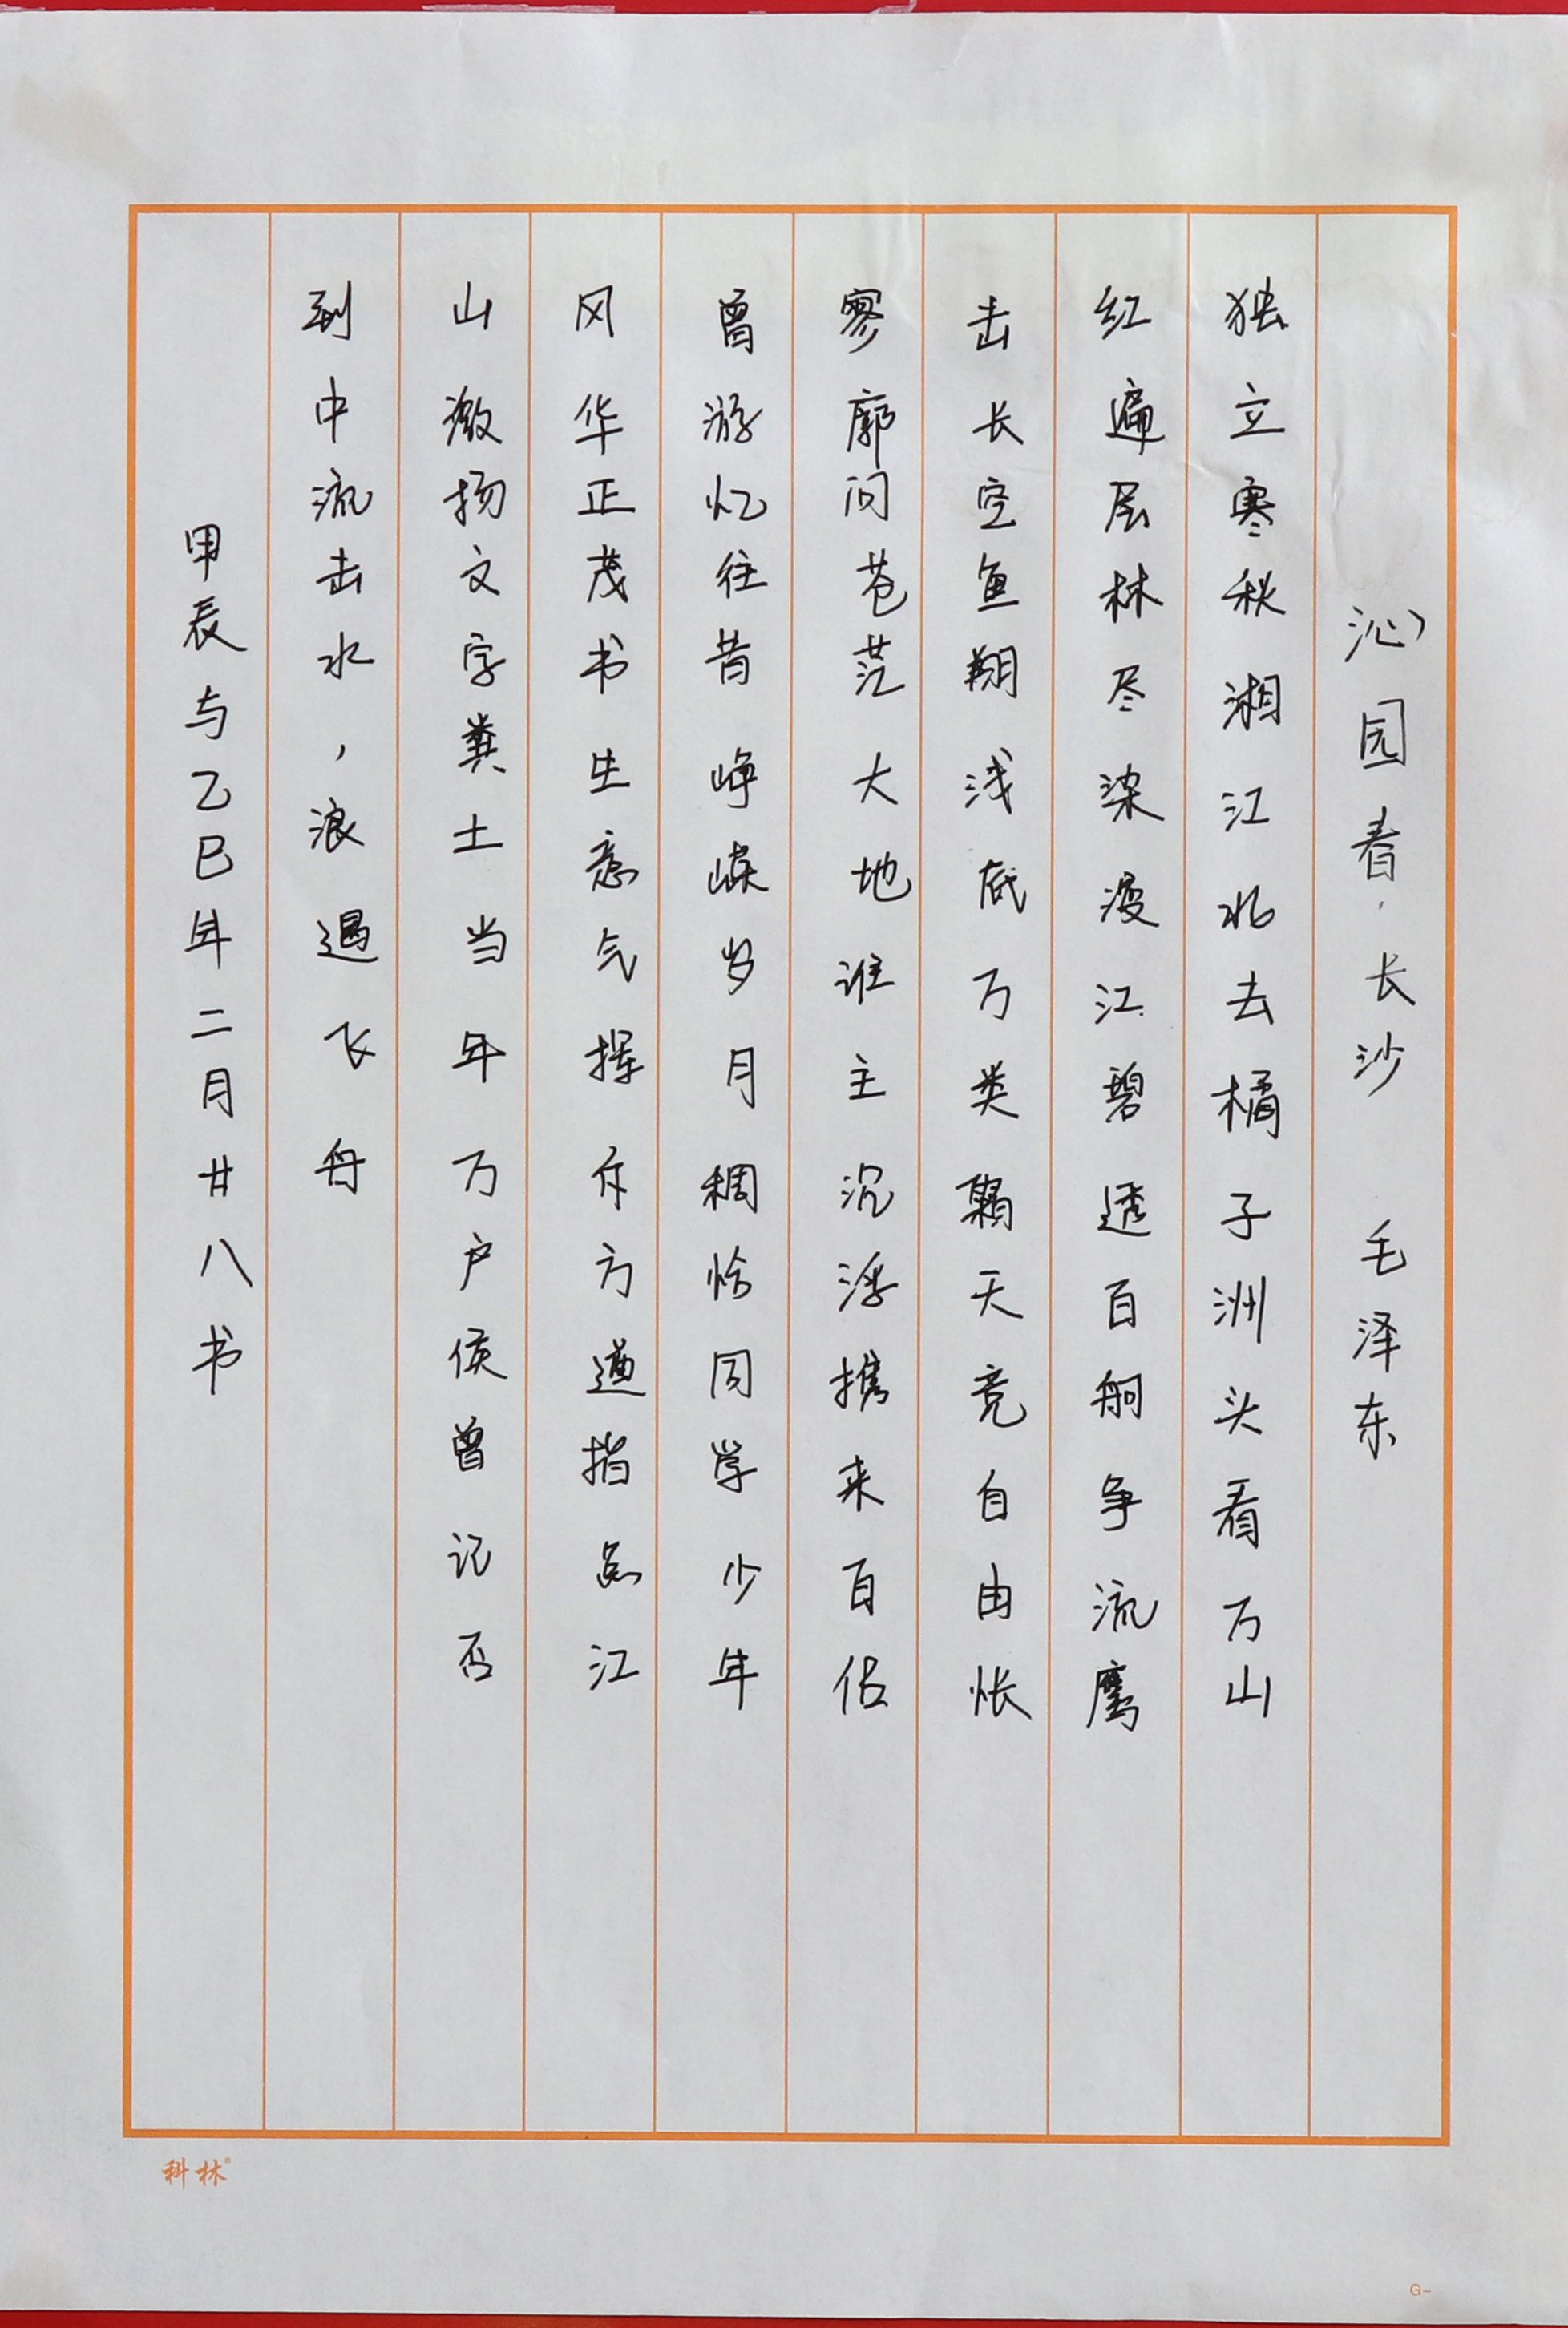 沁园春·长沙 毛泽东
独立寒秋湘江北去橘子洲头看万山
红遍层林尽染漫江碧透百舸争流鹰
击长空鱼翔浅底万类霜天竞自由怅
寥廓问苍茫大地谁主沉浮携来百侣
曾游忆往昔峥嵘岁月稠恰同学少年
风华正茂书生意气挥斥方遒指点江
山激扬文字粪土当年万户侯曾记否
到中流击水，浪遏飞舟
甲辰与乙巳年二月廿八书
科林®
G-